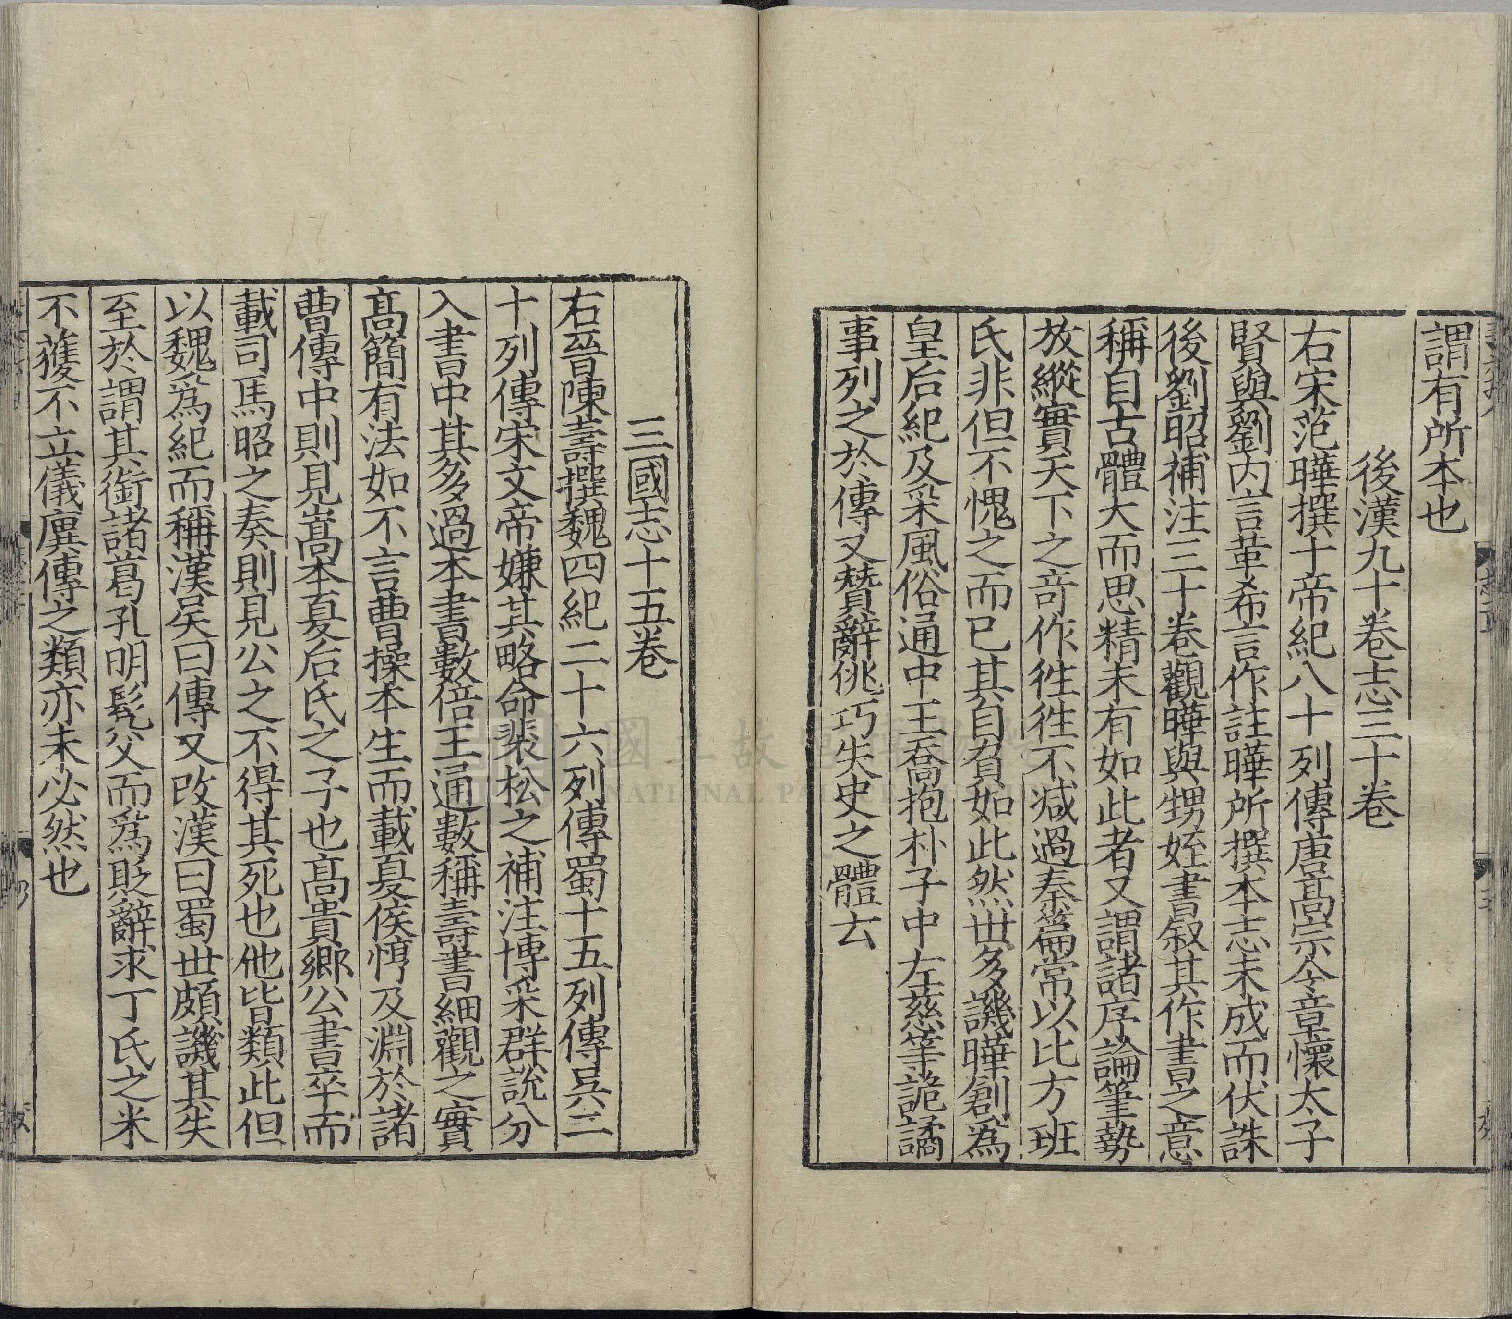 謂有所本也
後漢九十卷志三十卷
右宋范曄撰十帝紀八十列傳唐高宗令章懷太子
賢與劉内言革希言作註曄所撰本志未成而伏誅
後劉昭補注三十卷觀曄與甥姪書敘其作書之意
稱自古體大而思精未有如此者又謂諸序論筆勢
放縱實天下之竒作徃徃不减過秦篇常以比方班
氏非但不愧之而已其自負如此然世多譏曄創為
皇后紀及采風俗通中王喬抱朴子中左慈等詭譎
事列之於傳又贊辭佻巧失史之體云
三國志十五卷
右晉陳壽撰魏四紀二十六列傳蜀十五列傳吳二
十列傳宋文帝嫌其略命裴松之補注博采群說分
入書中其多過本書數倍王通數稱壽書細觀之實
髙簡有法如不言曹操本生而載夏侯惇及淵於諸
曹傳中則見嵩本夏后氏之子也髙貴鄉公書卒而
載司馬昭之奏則見公之不得其死也他皆類此但
以魏爲紀而稱漢吳曰傳又改漢曰蜀世頗譏其失
至於謂其銜諸葛孔明髡父而爲貶辭求丁氏之米
不獲不立儀廙傳之類亦未必然也
國立故宮博物院
NATIONAL PALACE MUSEUM